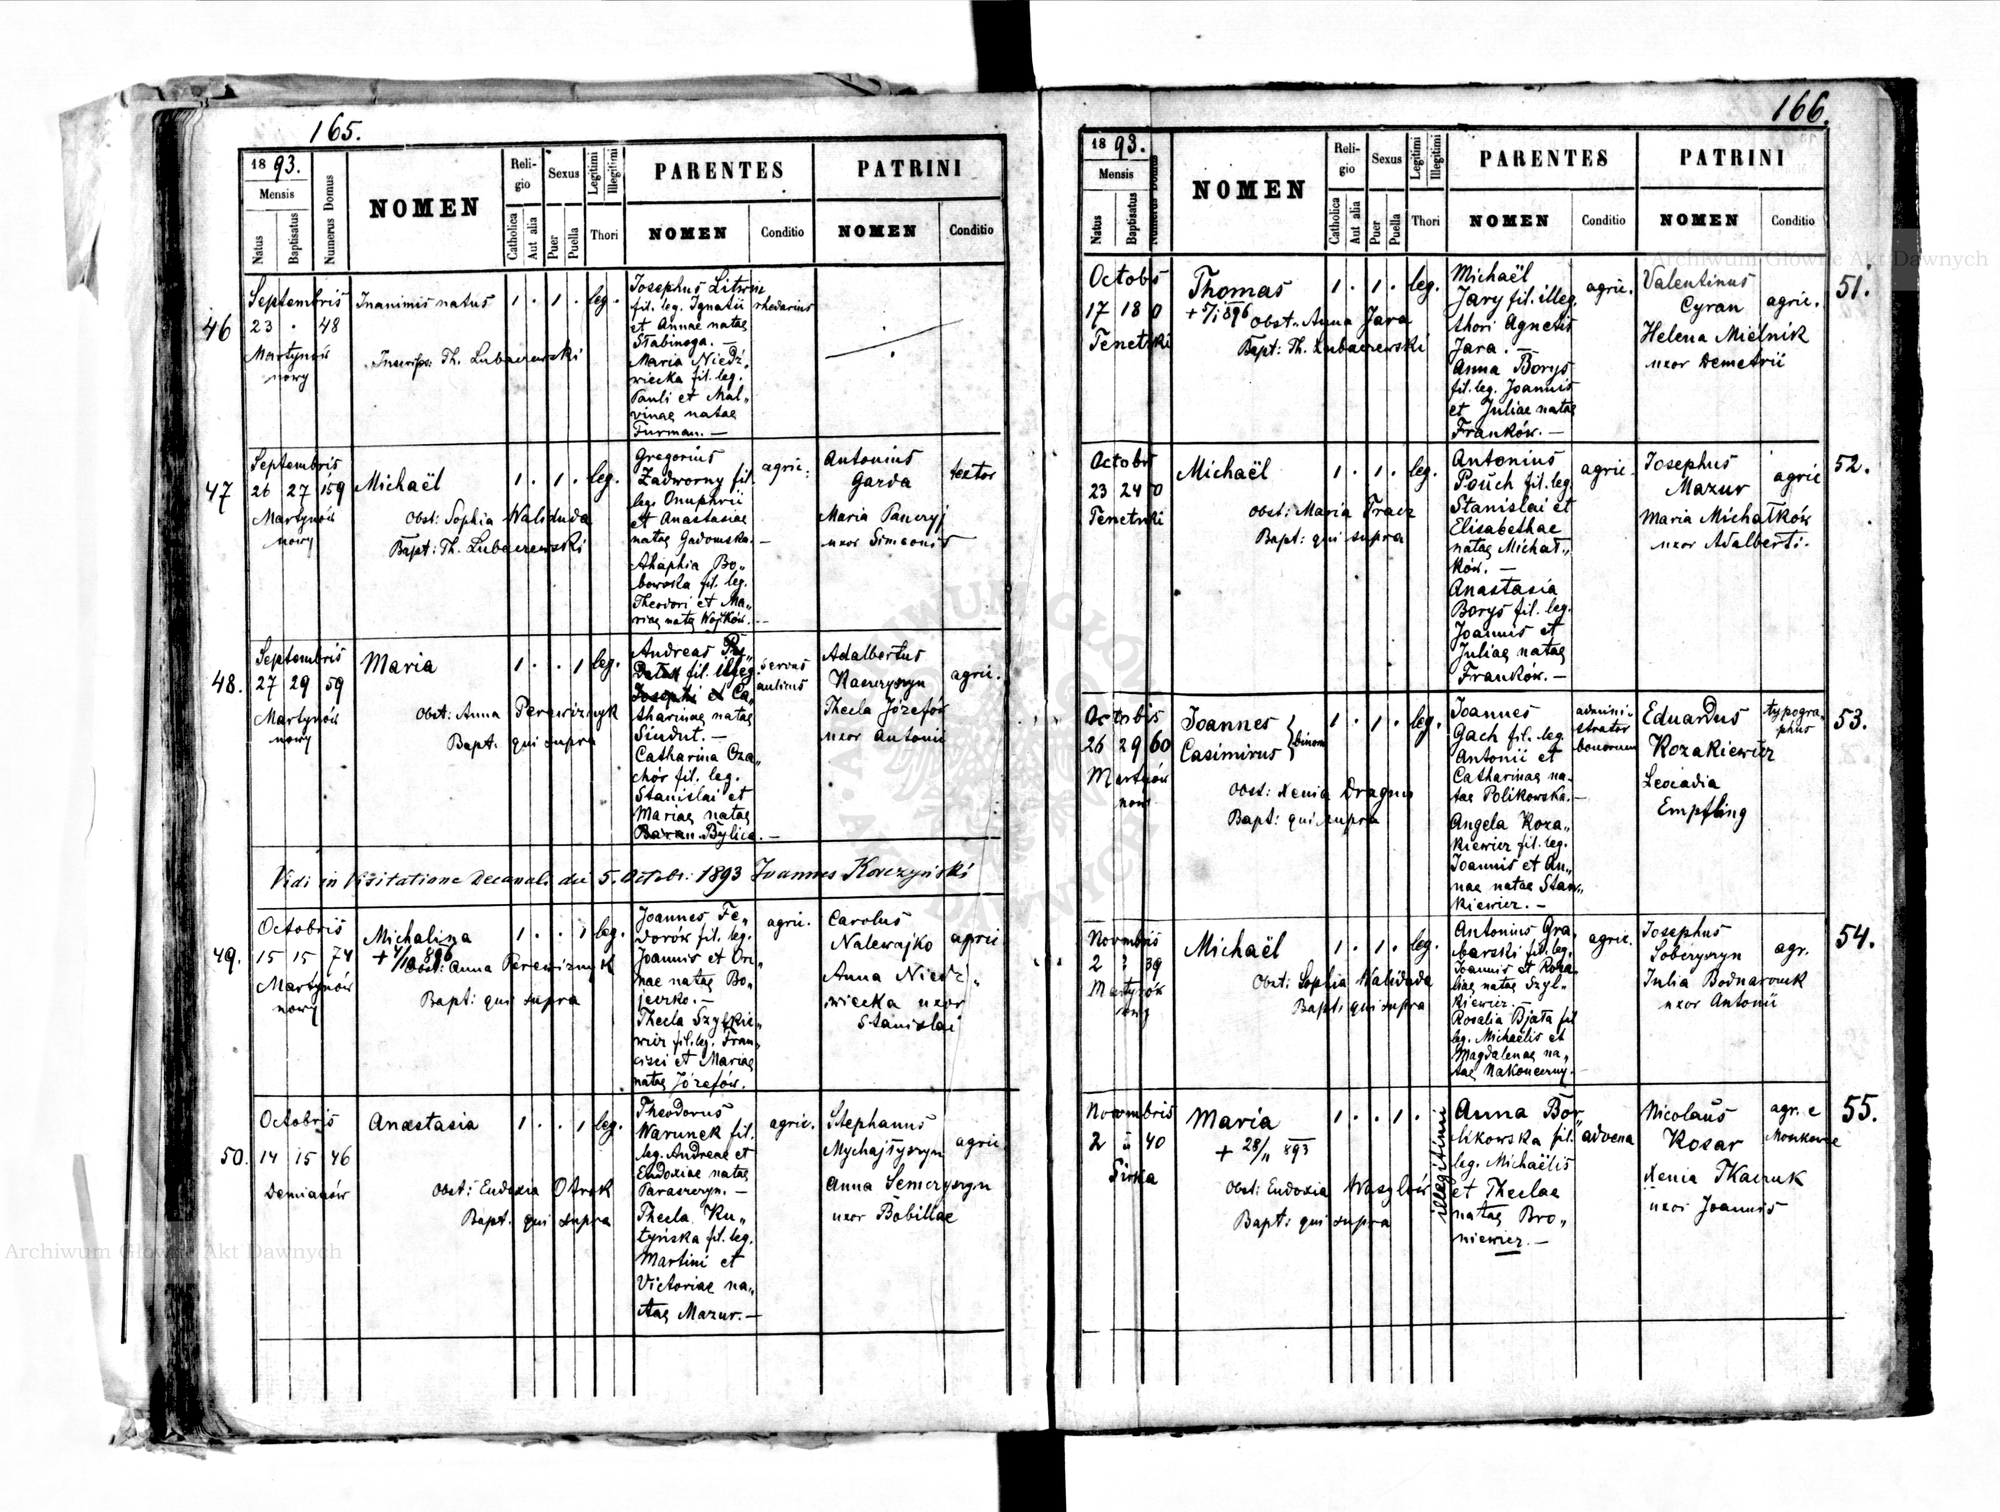 165.
18 93.
Mensis
Natus
Baptisatus
Numerus Domus
NOMEN
Religio
Catholica
Aut alia
Sexus
Puer
Puella
Legitimi
Illegitimi
Thori
PARENTES
NOMEN
Conditio
PATRINI
NOMEN
Conditio
46
Septembris
23 . 48
Martynów
nowy
Inanimis natus
1 . 1 . leg.
Inscrips: Th. Lubaczewski
Josephus Litwin
fil. leg. Ignatii
et Annae natae
Stabinoga. —
Maria Niedź,,
wiecka fil. leg.
Pauli et Mal,,
vinae natae
Furman. —
rhedarius
47
Septembris
26 27 159
Martynów
nowy
Michaël
1 . 1 . leg.
Obst: Sophia Naliduda
Bapt: Th. Lubaczewski
Gregorius
Zadworny fil.
leg. Onuphrii
et Anastasiae
natae Gadomska. —
Ahaphia Bo,,
bowska fil. leg.
Theodori et Ma,,
riae natae Wojtków. —
agric:
Antonius
Garda
Maria Panczyj
uxor Simeonis
textor
48.
Septembris
27 29 59
Martynów
nowy
Maria
1 . . 1 leg.
Obst: Anna Perewiznyk
Bapt. qui supra
Andreas
fil. illeg.
Josephi et Ca,,
tharinae natae
Sindut. —
Catharina Oza,,
chór fil. leg.
Stanislai et
Mariae natae
Baran Bylica. —
servus
aulicus
Adalbertus
Kaczczyszyn
Thecla Józefów
uxor Antonii
agric.
Vidi in Visitatione Decanali die 5. Octobr: 1893 Joannes Korczyński
49.
Octobris
15 15 74
Martynów
nowy
Michalina
1 . . 1 leg.
+ 4/10 896
Obst: Anna Perewiznyk
Bapt: qui supra
Joannes Fe,,
dorów fil. leg.
Joannis et Ori,,
nae natae Bo,,
jeczko. —
Thecla Szylkie,,
wicz fil. leg. Fran,,
cisci et Mariae
natae Józefów.
agric.
Carolus
Nalewajko
Anna Niedź,,
wiecka uxor
Stanislai
agric
50.
Octobris
14 15 46
Demianów
Anastasia
1 . . 1 leg.
Obst: Eudoxia Otrok
Bapt. qui supra
Theodorus
Warunek fil.
leg. Andreae et
Eudoxiae natae
Parasczyn. —
Thecla Ku,,
tyńska fil. leg.
Martini et
Victoriae na,,
tae Mazur. —
agric.
Stephanus
Mychajłyszyn
Anna Semczyszyn
uxor Bobillae
agric
166.
18 93.
Mensis
Natus
Baptisatus
Numerus Domus
NOMEN
Religio
Catholica
Aut alia
Sexus
Puer
Puella
Legitimi
Illegitimi
Thori
PARENTES
NOMEN
Conditio
PATRINI
NOMEN
Conditio
Octobs
17 18 0
Tenetnki
Thomas
1 . 1 . leg.
+ 5/1 896
Obst. Anna Jara
Bapt: Th. Lubaczewski
Michaël
Jary fil. illeg.
thori Agnetis
Jara. —
Anna Borys
fil. leg. Joannis
et Juliae natae
Franków. —
agric.
Valentinus
Cyran
Helena Mielnik
uxor Demetrii
agric.
51.
Octobs
23 24 0
Tenetnki
Michaël
1 . 1 . leg.
Obst: Maria Tracz
Bapt: qui supra
Antonius
Pouch fil. leg.
Stanislai et
Elisabethae
natae Michał,,
ków. —
Anastasia
Borys fil. leg.
Joannis et
Juliae natae
Franków. —
agric.
Josephus
Mazur
Maria Michałków
uxor Adalberti.
agric
52.
Octobis
26 29 60
Martynów
nowy
Joannes
Casimirus } binom
1 . 1 . leg.
Obst: Xenia Dragun
Bapt: qui supra
Joannes
Gach fil. leg.
Antonii et
Catharinae na-
tae Polikowska. —
Angela Koza,,
kiewicz fil. leg.
Joannis et An,,
nae natae Stan,,
kiewicz. —
adminis
trator
bonorum
Eduardus
Kozakiewicz
Leocadia
Empfling
typogra
phus
53.
Novmbris
2 3 39
Martynów
nowy
Michaël
1 . 1 . leg.
Obst: Sophia Naliduda
Bapt: qui supra
Antonius Gra,,
barski fil. leg.
Joannis et Roza,,
liae natae Szyl,,
kiewicz —
Rosalia Bjata fil
leg. Michaëlis et
Magdalenae na,,
tae Nakoneczny. —
agric.
Josephus
Soberyszyn
Julia Bodnarouk
uxor Antonii
agr.
54.
Novmbris
2 40
Siwka
Maria
1 . . 1 .
illegitimi
+ 28/11 893
Obst: Eudoxia Wasylów
Bapt: qui supra
Anna Bor,,
likowska fil.
leg. Michaëlis
et Theclae
natae Bro,,
niewicz. —
advena
Nicolaus
Kosar
Xenia Tkaczuk
uxor Joannis
agr. e
55.
Archiwum Główne Akt Dawnych
Archiwum Główne Akt Dawnych
ARCHIWUM GŁÓWNE AKT DAWNYCH